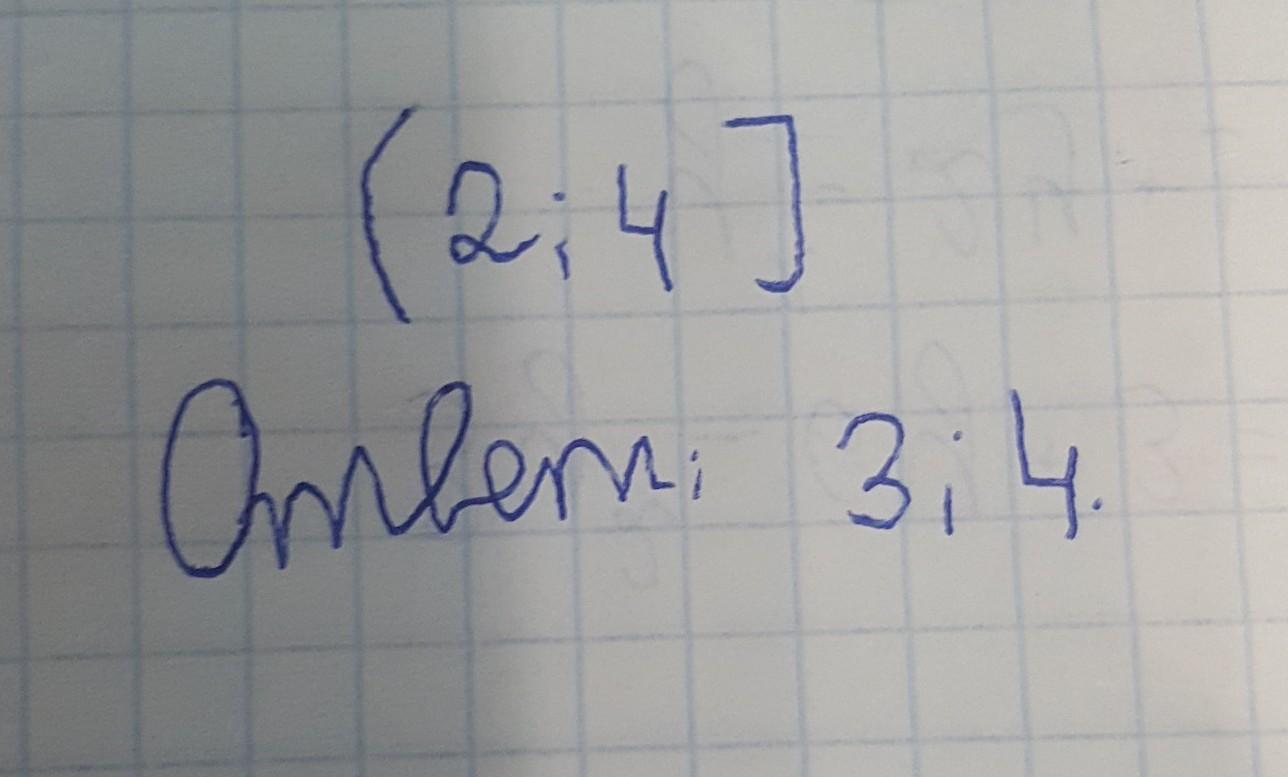 (2; 4]
Ответ: 3; 4.